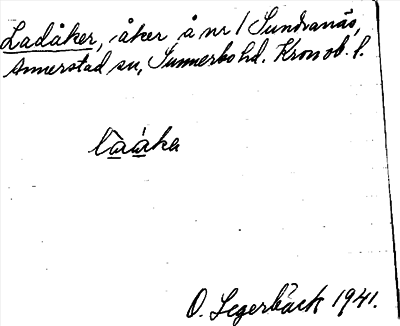 Ladåker, åker å nr 1 Sundranäs,
Annerstad sn, Sunnerbo hd. Kronob. l.
O. Segerbäck 1941.